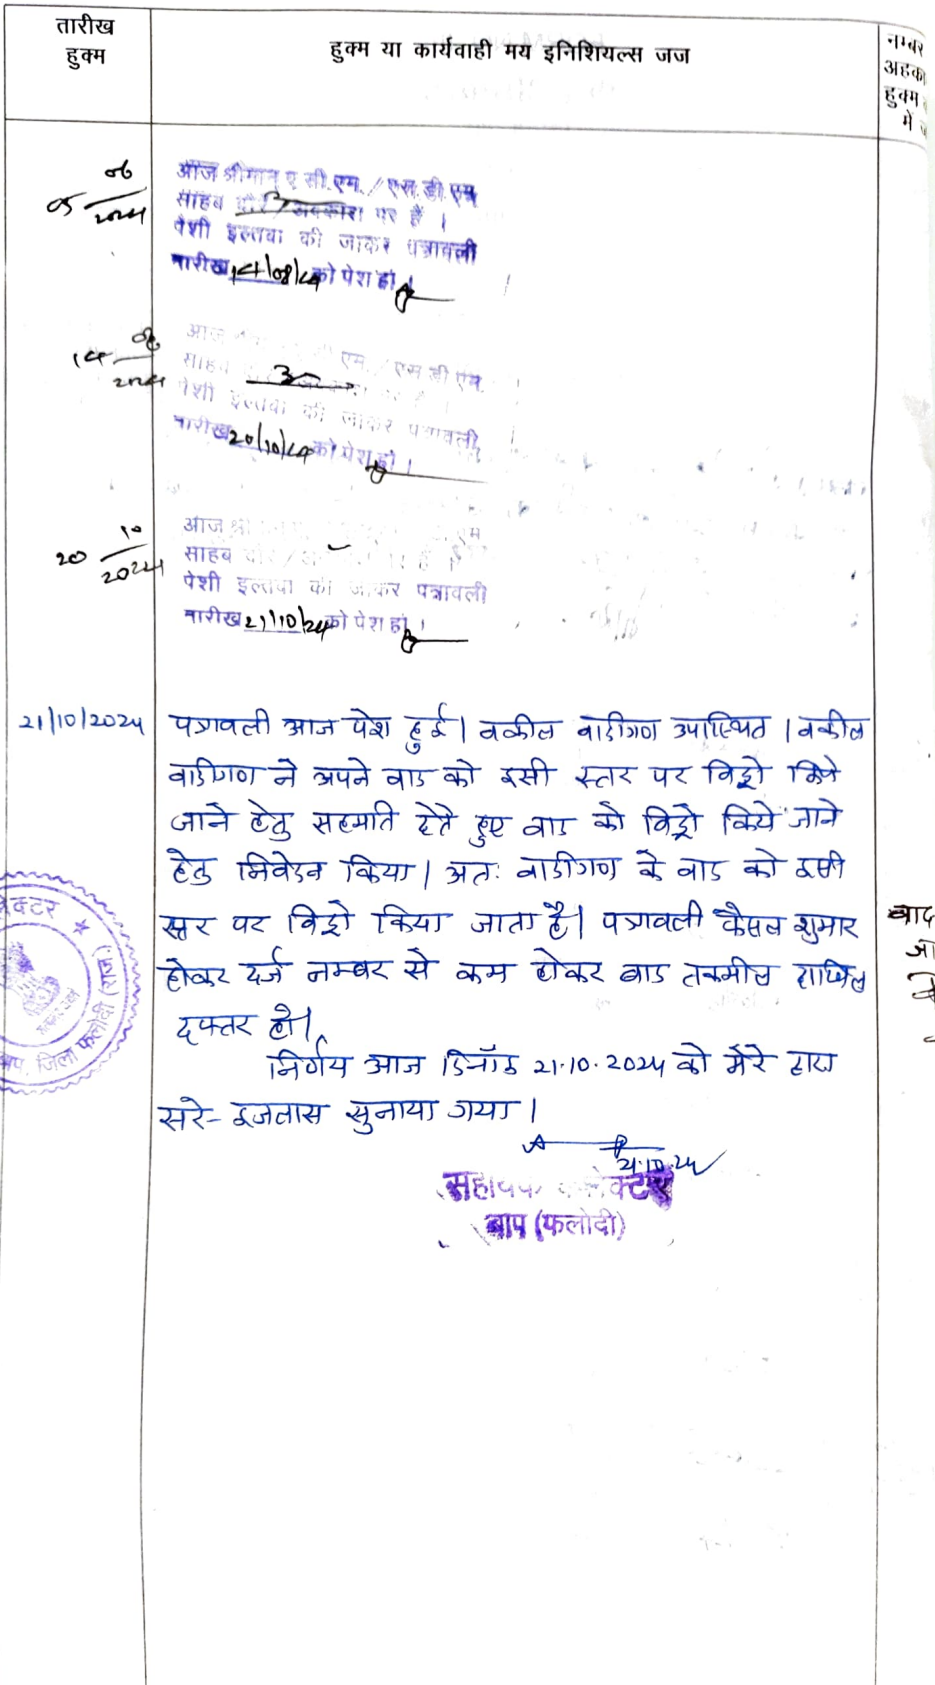 तारीख
हुक्म
हुक्म या कार्यवाही मय इनिशियल्स जज
नम्बर
अहका
हुक्म
में
05 06/2024
आज श्रीमान ए सी.एम./एस.डी.एम
साहब दौरे/अवकाश पर हैं ।
पेशी इल्तवा की जाकर पत्रावली
तारीख 14/08/24 को पेश हो ।
14 08/2024
आज एम. एस डी एम
साहब
पेशी इल्तवा की जाकर पत्रावली
तारीख 20/10/24 को पेश हो ।
20 10/2024
आज श्री एम
साहब
पेशी इल्तवा की जाकर पत्रावली
तारीख 21/10/24 को पेश हो ।
21/10/2024
पत्रावली आज पेश हुई। वकील वादीगण उपस्थित । वकील
वादीगण ने अपने वाद को इसी स्तर पर विड्रो किये
जाने हेतु सहमति देते हुए वाद को विड्रो किये जाने
हेतु निवेदन किया। अतः वादीगण के वाद को इसी
स्तर पर विड्रो किया जाता है। पत्रावली फैसल शुमार
होकर दर्ज नम्बर से कम होकर बाद तकमील दाखिल
दफ्तर हो।
निर्णय आज दिनाँक 21.10.2024 को मेरे द्वारा
सरे-इजलास सुनाया गया।
21.10.24
सहायक कलेक्टर
बाप (फलोदी)
क्टर
बाप, जिला फलोदी (राज.)
वाद
जा